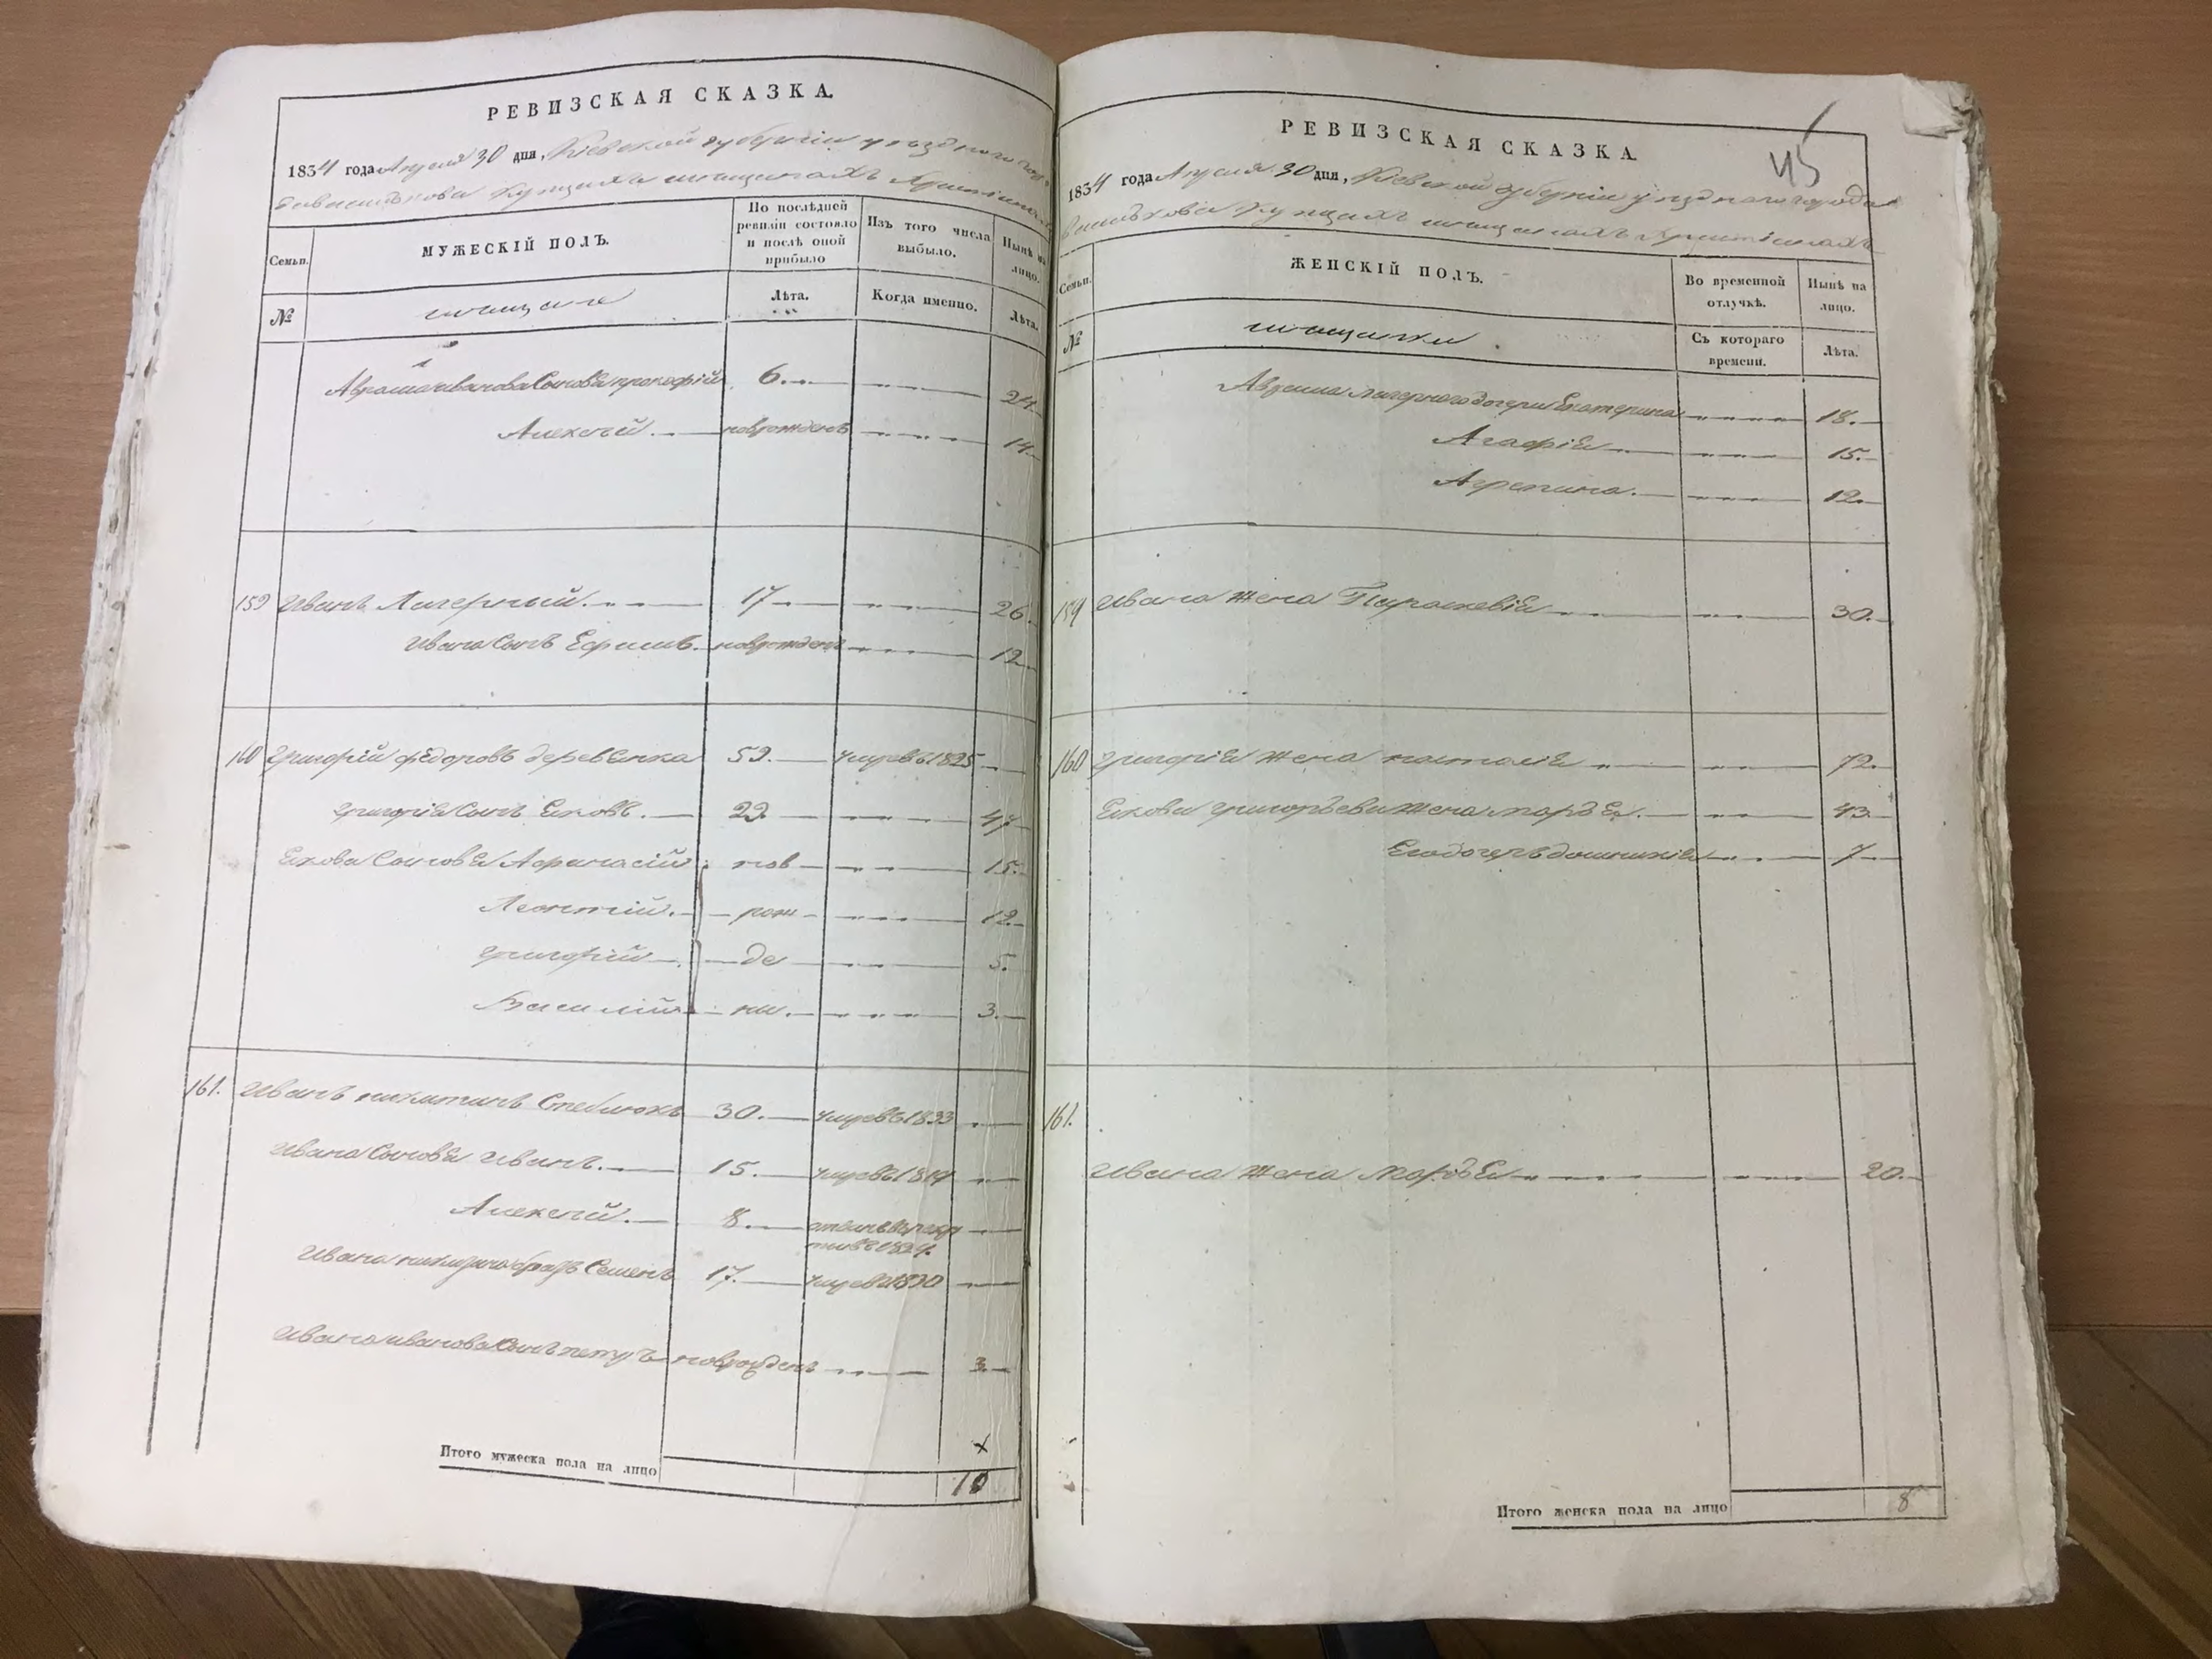 РЕВИЗСКАЯ СКАЗКА.
1834 года Апреля 30 дня, Кіевской губерніи уезднаго города
Васылькова купцахъ мещанахъ Христіанахъ
Семьи.
МУЖЕСКІЙ ПОЛЪ.
По послѣдней ревизіи состояло и послѣ оной прибыло
Изъ того числа выбыло.
Нынѣ на лицо.
№
мещане
Лѣта.
Когда именно.
Лѣта.
Абрама Иванова Сыновья прокофій 6. 24
Алексей новрожденъ 14
159 Иванъ Лагерный 17 26.
Ивана Сынъ Ефимъ новрожденъ 12
160 григорій федоровъ деревянка 52. умре въ 1825
григорія Сынъ Яковъ. 22. 47
Якова Сыновья Афанасій нов 15.
Леонтій. рож 12.
григорій де 5.
Василій ны. 3.
161. Иванъ никитинъ Стеблюкъ 30. умре въ 1833
Ивана Сыновья Иванъ. 15. умре въ 18
Алексей. 8. отданъ в рекр
Ивана брать Семенъ 17. умре 1830
Ивана иванова Сынъ петръ новрожденъ 3
Итого мужеска пола на лицо 10
45
РЕВИЗСКАЯ СКАЗКА
1834 года Апреля 30 дня, Кіевской губерніи уезднаго города
Василькова купцахъ мещанахъ Христіанахъ
Семьи.
ЖЕНСКІЙ ПОЛЪ.
Во временной отлучкѣ.
Нынѣ на лицо.
№
мещанки
Съ котораго времени.
Лѣта.
лагернаго дочери Екатерина 18.
Агафія 15.
Агрепина. 12.
159 Ивана жена Параскевія 30.
160 григорія жена наталія 72.
Якова григорьева жена марья. 43.
Его дочерь домникія 7
161.
Ивана жена Марья 20.
Итого женска пола на лицо 8